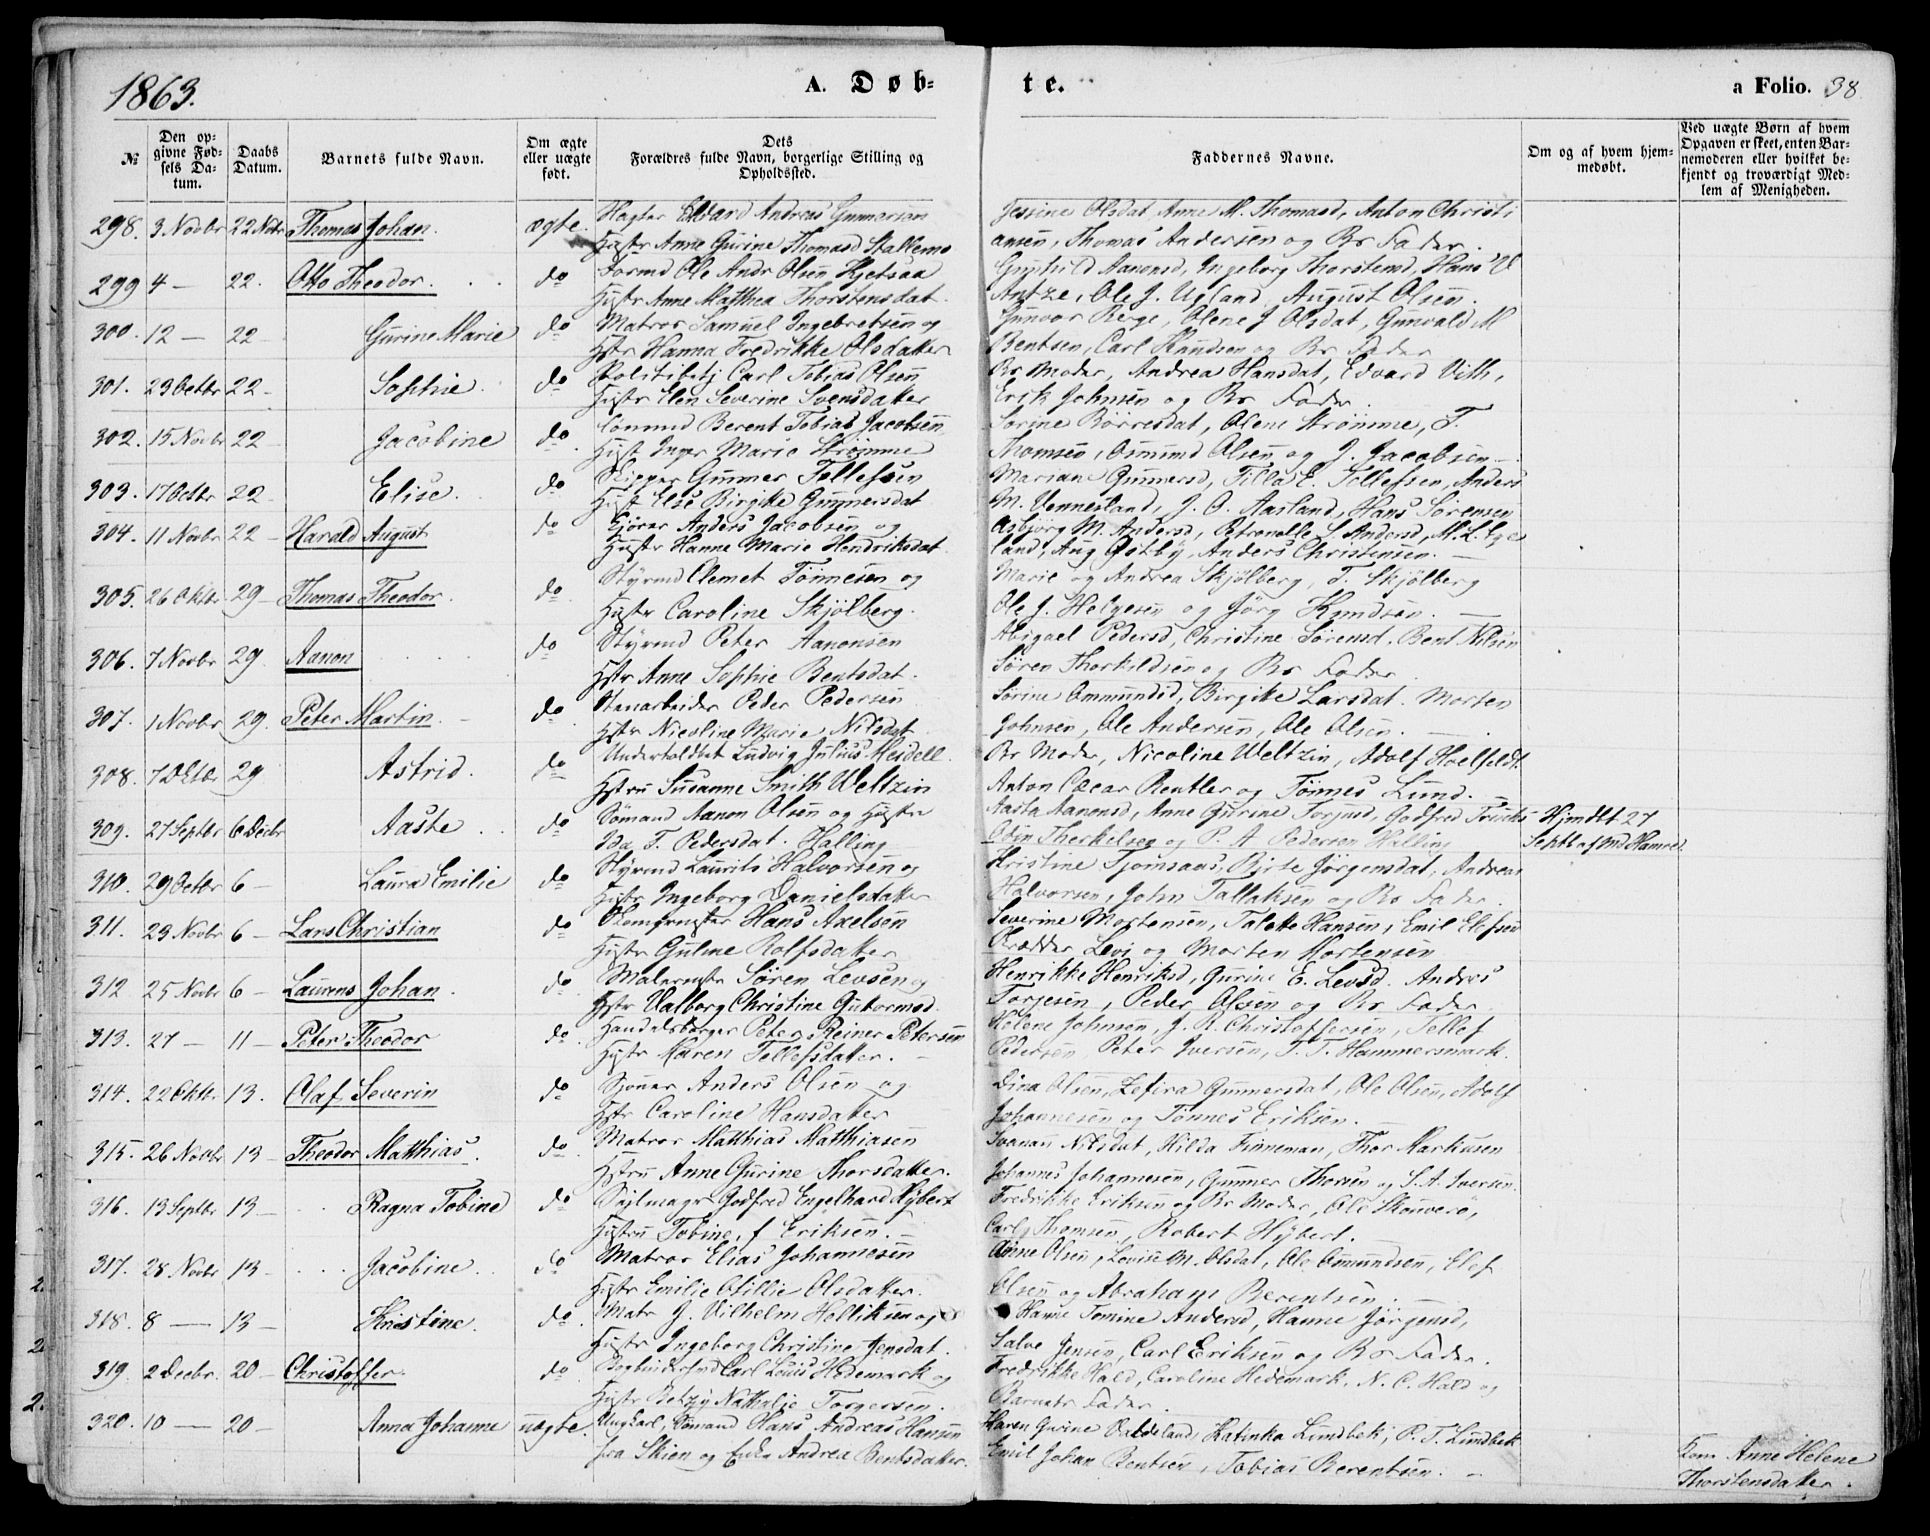 1863.
A. Døb-
te.
a Folio. 38
№
Den op-
givne Fød-
sels Da-
tum.
Daabs
Datum.
Barnets fulde Navn.
Om ægte
eller uægte
født.
Dets
Forældres fulde Navn, borgerlige Stilling og
Opholdssted.
Faddernes Navne.
Om og af hvem hjem-
medøbt.
Ved uægte Børn af hvem
Opgaven er skeet, enten Bar-
nemoderen eller hvilket be-
kjendt og troværdigt Med-
lem af Menigheden.
298. 3 Novbr 22 Novbr Thomas Johan. ægte. Edvard Andreas Gunnarsen Jessine Olsdat, Anne M. Thomasd, Anton Christi
Hustr Anne Gurine Thomasd Stallemo ansen, Thomas Andersen og Br Fader.
299 4 — 22. Otto Theodor. do Formd Ole Andr Olsen Kjetsaa Gunhild Aanonsd, Ingeborg Thorstensd, Hans
Hustr Anne Matthea Thorstensdat. Antze, Ole J. Ugland, August Olsen.
300. 12 — 22 Gurine Marie do Matros Samuel Ingebretsen og Gunvor Berge, Olene J Olsdat, Gunvald M
Hstr Hanna Fredrikke Olsdatter Bentsen, Carl Knudsen og Br Fader
301. 29 Octbr 22 Sophie. do Politibetj Carl Tobias Olsen Br Moder, Andrea Hansdat, Edvard Vith,
Hustr Elen Severine Svensdatter Erik Johnsen og Br Fader.
302. 15 Novbr 22 Jacobine do Berent Tobias Jacobsen Sorine Børresdat, Olene Strømme, T.
Hust Inger Marie Strømme Thomsen, Osmund Olsen og J. Jacobsen
303. 17 Octbr 22 Elise. do Skipper Gunner Tellefsen Mariane Gunnersd, Tilla E. Tellefsen, Anders
Hust Else Birgitte Gunnersdat M. Vennesland, J. O. Aarland, Hans Sörensen
304. 11 Novbr 22 Harald August do Kjører Anders Jacobsen og Asbjörg M. Andersd, Petronelle S. Andersd, M. L.
Hustr Hanne Marie Hendriksdat land, Aug Østby, Anders Christensen.
305. 26 Oktbr 29 Thomas Theodor. do Styrmd Clemet Tönnesen og Marie og Andrea Skjölberg, T. Skjölberg
Hustr Caroline Skjölberg. Ole J. Helgesen og Jörg Knudsen.
306. 7 Novbr 29 Aanon do Styrmd Peter Aanonsen Abigael Pedersd, Christine Sörensd. Bent Nilsen
Hstr Anne Sophie Bentsdat. Søren Thorkildsen og Br Fader.
307. 1 Novbr 29. Peter Martin. do Stenarbeider Peder Pedersen Sörine Ommundsd, Birgitte Larsdat. Morten
Hstr Nicoline Marie Nilsdat Johnsen, Ole Andersen, Ole Olsen.
308. 7 Oktbr 29 Astrid. do Undertoldbet Ludvig Julius Heidell. Br Moder, Nicoline Weltzin, Adolf Hoelfeldt.
Hstru Susanne Smith Weltzin Anton Cæcar Rentler og Tönnes Lund.
309. 27 Septbr 6 Decbr Aaste do Sömand Aanon Olsen og Hustr Aasta Aanonsd, Anne Gurine Torjusd, Godfred Friichs Hjmdbt 27
Ida T. Pedersdat. Halling Odin Therkelsen og P. A Pedersen Halling Septb af Md Hamre.
310. 29 Octbr 6 — Laura Emilie do Styrmd Laurits Halvorsen og Kristine Tjomsaas, Birte Jörgensdat, Andreas
Hustr Ingeborg Danielsdatter Halvorsen, John Tallaksen og Br Fader.
311. 23 Novbr 6 — Lars Christian do Hans Axelsen Severine Mortensen, Talette Hansen, Emil Elefsen
Hustr Guline Rolfsdatter Skrædder Levi og Morten Mortensen
312 25 Novbr 6 — Laurens Johan. do Malermstr Søren Levsen og Henrikke Henriksd, Gurine E. Levsd. Anders
Hstr Valborg Christine Guttormsd. Torjesen, Peder Olsen og Br Fader
313. 27 — 11 — Peter Theodor do Handelsborger Peter Reiner Petersen Helene Johnsen, J. R. Christoffersen, Tellef
Hustr Maren Tellefsdatter. Pedersen Peter Iversen, T. T. Hammersmark.
314. 22 Oktbr 13. Olaf Severin do Anders Olsen og Dina Olsen, Zefira Gunnersdat, Ole Olsen, Adolf
Hstr Caroline Hansdatter Johannesen og Tönnes Eriksen.
315. 26 Novbr 13 — Theodor Matthias. do Matros Matthias Matthiasen Svanau Nilsdat, Hilda Finneman, Thor Markusen
Hstru Anne Gurine Thorsdatter. Johannes Johannesen, Gunner Thorsen og S. A. Iversen.
316. 13 Septbr 13 — Ragna Tobine do Seilmagr Godfred Engelhard Hybert Fredrikke Eriksen og Br Moder, Ole Skouverö,
Hustru Tobine, f Eriksen. Carl Thomsen, Robert Hybert.
317. 28 Novbr 13 — Jacobine. do Matros Elias Johannesen Anne Olsen, Lovise M. Olsdat, Ole Omundsen, Elef
Hustr Emilie Otillie Olsdatter. Olsen og Abraham Berentsen.
318. 8 — 13 — Kristine. do Matr J. Vilhelm Holliksen og Hanne Tomine Andersd, Hanne Jörgensd,
Hustr Ingeborg Christine Jensdat. Salve Jensen, Carl Eriksen og Br Fader.
319. 2 Decbr. 20 — Christoffer. do Carl Louis Hedemark og Fredrikke Hald, Caroline Hedemark, N. C. Hald og
Hustr Betzy Nathalie Torgersen. Barnets Fader.
320. 10 — 20 — Anna Johanne uægte. Ungkarl, Sømand Hans Andreas Hansen Karen Gurine Valdeland, Katinka Lundbek, P. T. Lundbek
fra Skien og Enke Andrea Bentsdatter. Emil Johan Bentsen, Tobias Berentsen. Kone Anne Helene
Thorstensdatter.